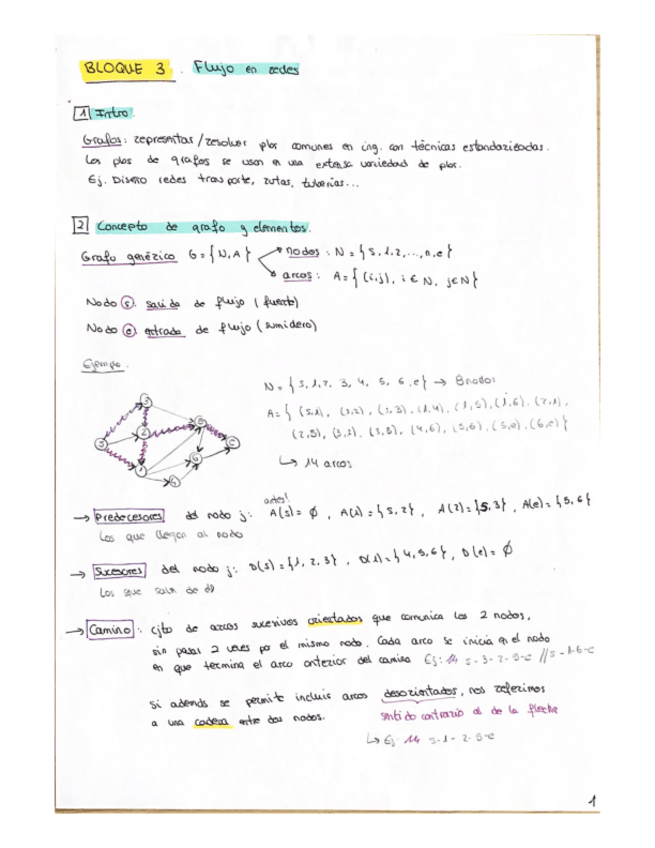 BLOQUE 3. Flujo en redes
1 Intro.
Grafos: representar/resolver pbs comunes en ing. con técnicas estandarizadas.
Los pbs de grafos se usan en una extensa variedad de pbs.
Ej. Diseño redes transporte, rutas, tuberías...
2 Concepto de grafo y elementos.
Grafo genérico G = {N, A}
nodos: N = {s, 1, 2, ..., n, e}
arcos: A = {(i,j), i ∈ N, j ∈ N}
Nodo s. salida de flujo (fuente)
Nodo e. entrada de flujo (sumidero)
Ejemplo.
N = {s, 1, 2, 3, 4, 5, 6, e} → 8 nodos
A = { (s,1), (s,2), (s,3), (1,4), (1,5), (1,6), (2,1),
(2,5), (3,2), (3,5), (4,6), (5,6), (5,e), (6,e) }
↳ 14 arcos.
3
s 2 5 e
1 6
4
antes!
→ Predecesores del nodo j: A(s) = ∅, A(1) = {s, 2}, A(2) = {s, 3}, A(e) = {5, 6}
Los que llegan al nodo
→ Sucesores del nodo j: D(s) = {1, 2, 3}, D(1) = {4, 5, 6}, D(e) = ∅
Los que salen de él
→ Camino: cjto de arcos sucesivos orientados que comunica los 2 nodos,
sin pasar 2 veces por el mismo nodo. Cada arco se inicia en el nodo
en que termina el arco anterior del camino Ej: s-3-2-5-e // s-1-6-e
Si además se permite incluir arcos desorientados, nos referimos
a una cadena entre dos nodos. sentido contrario al de la flecha
↳ Ej s-1-2-5-e
1